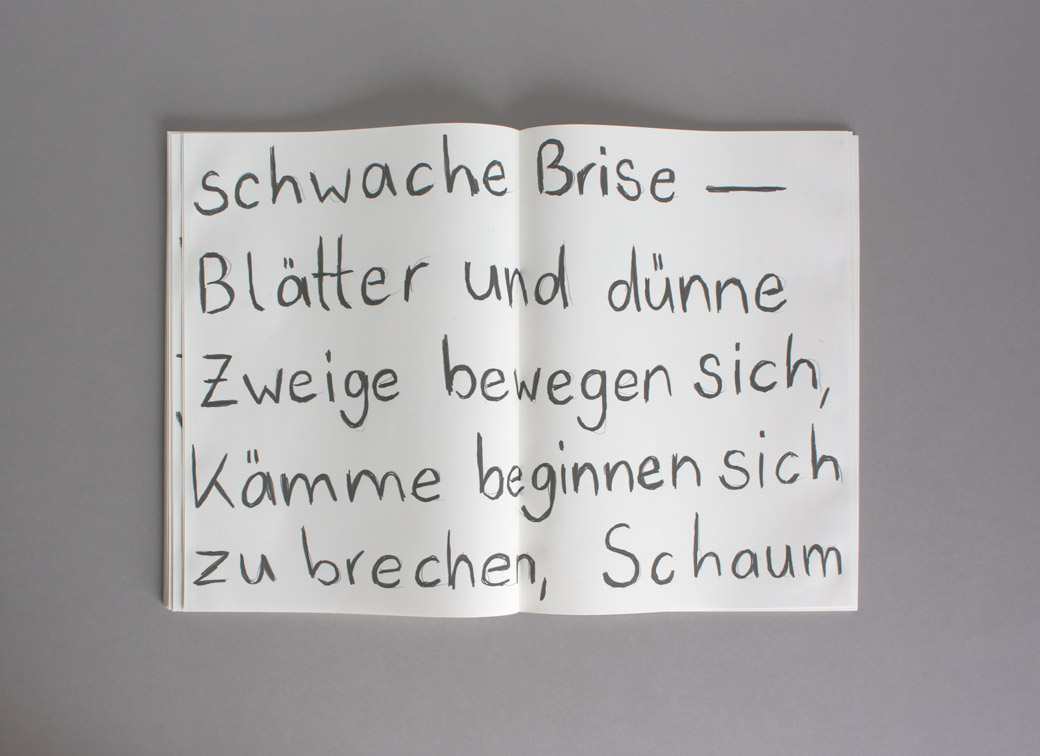 schwache Brise —
Blätter und dünne
Zweige bewegen sich,
Kämme beginnen sich
zu brechen, Schaum